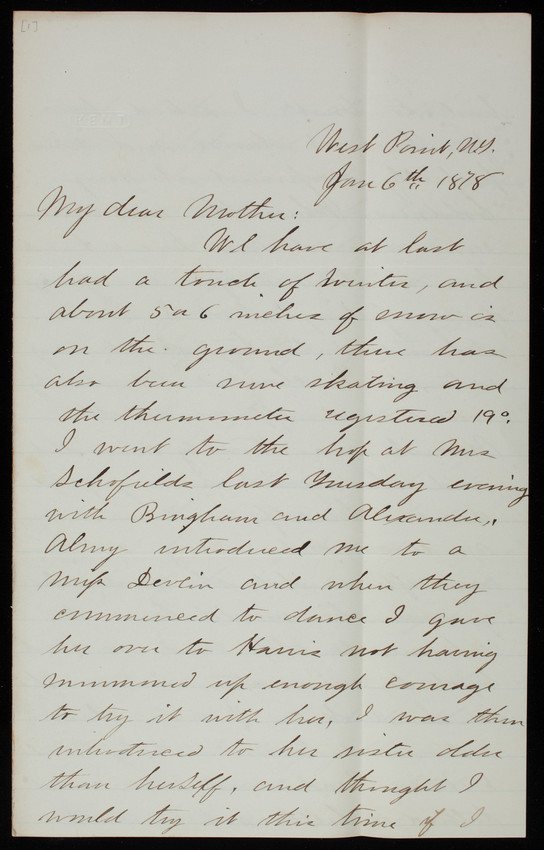 [1]
West Point, N.Y.
Jan 6th 1878
My dear Mother:
We have at last
had a touch of winter, and
about 5 or 6 inches of snow is
on the ground, there has
also been some skating and
the thermometer registered 19°.
I went to the hop at Mrs
Schofields last Tuesday evening
with Bingham and Alexander,
Almy introduced me to a
Miss Devlin and when they
commenced to dance I gave
her over to Harris not having
summoned up enough courage
to try it with her, I was then
introduced to her sister older
than herself, and thought I
would try it this time if I